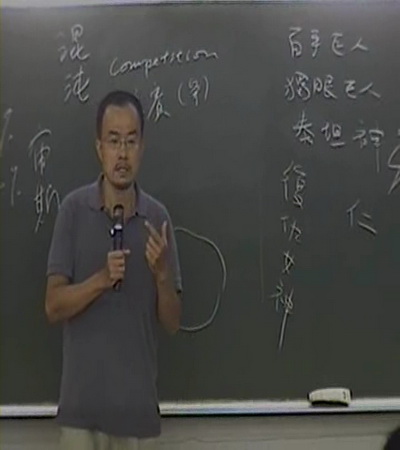 混沌
Competition
賽
宙斯
百手巨人
獨眼巨人
泰坦神
復仇女神
仁